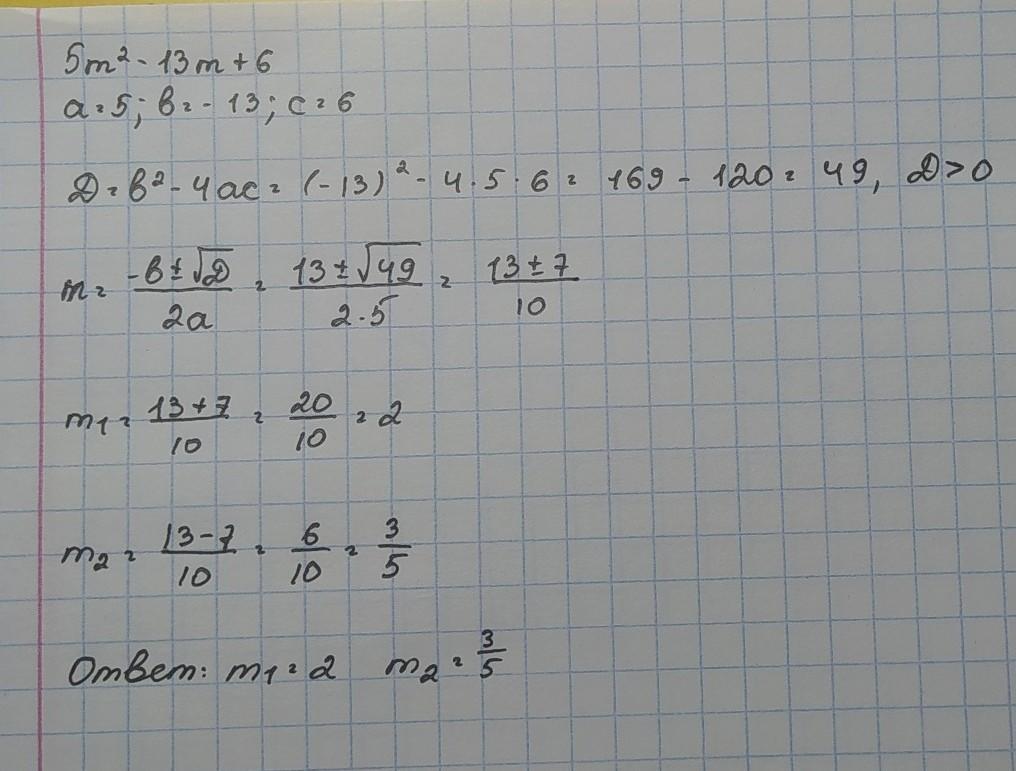 5m² - 13m + 6
a = 5; в = - 13; c = 6
D = в² - 4ac = (-13)² - 4 · 5 · 6 = 169 - 120 = 49, D > 0
m = (-в ± √D)/(2a) = (13 ± √49)/(2 · 5) = (13 ± 7)/10
m₁ = (13 + 7)/10 = 20/10 = 2
m₂ = (13 - 7)/10 = 6/10 = 3/5
Ответ: m₁ = 2 m₂ = 3/5